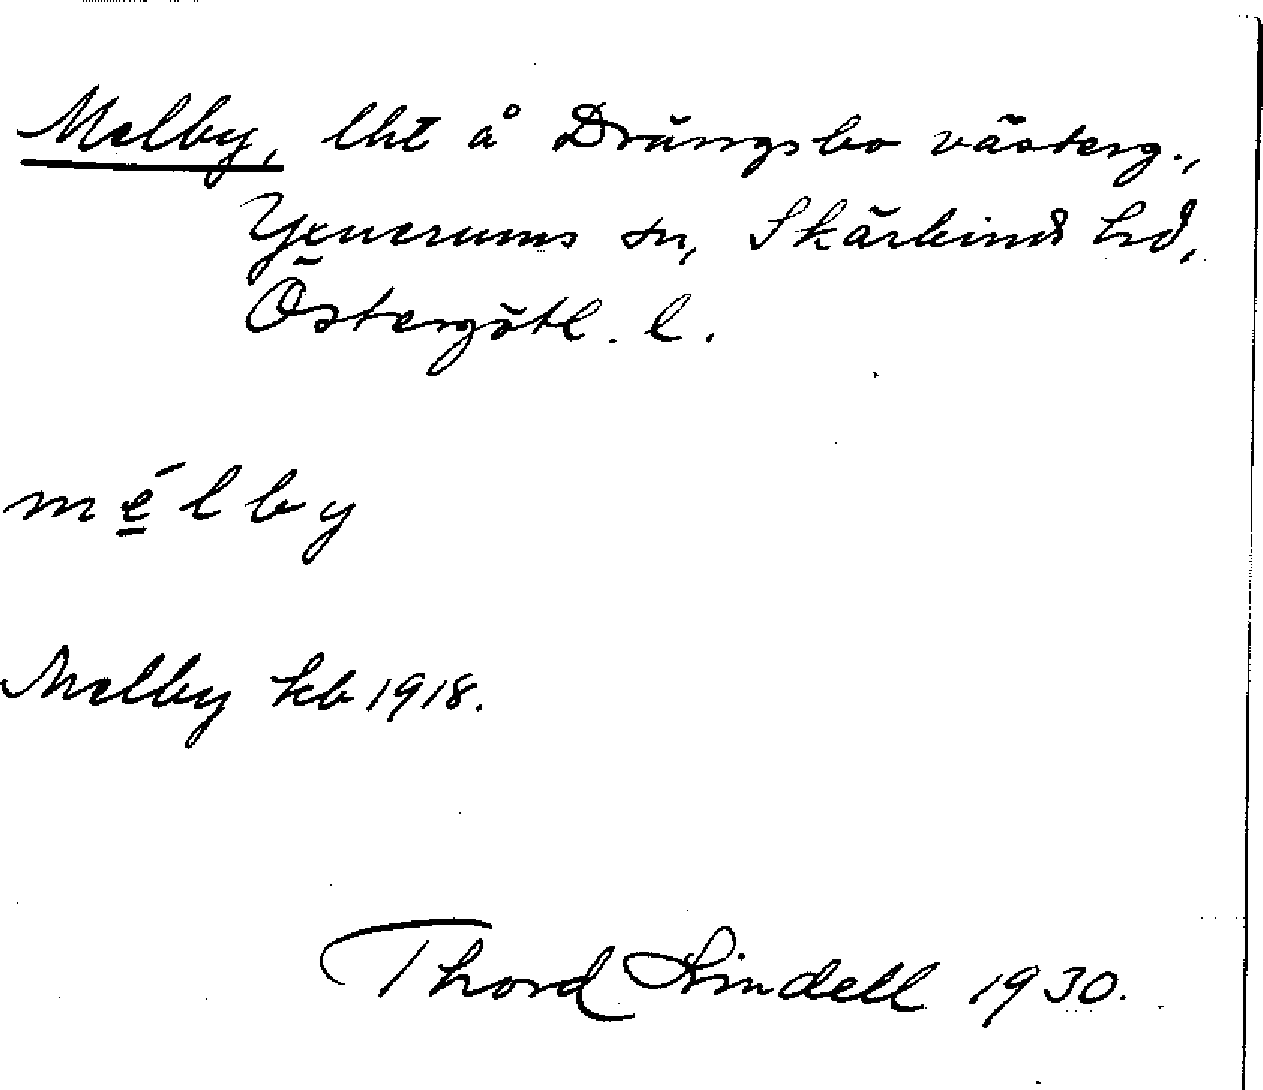 Melby, lht å Drängsbo västerg.,
Yxnerums sn, Skärkinds hd,
Östergötl. l.
mélby
Melby kb 1918.
Thord Lindell 1930.